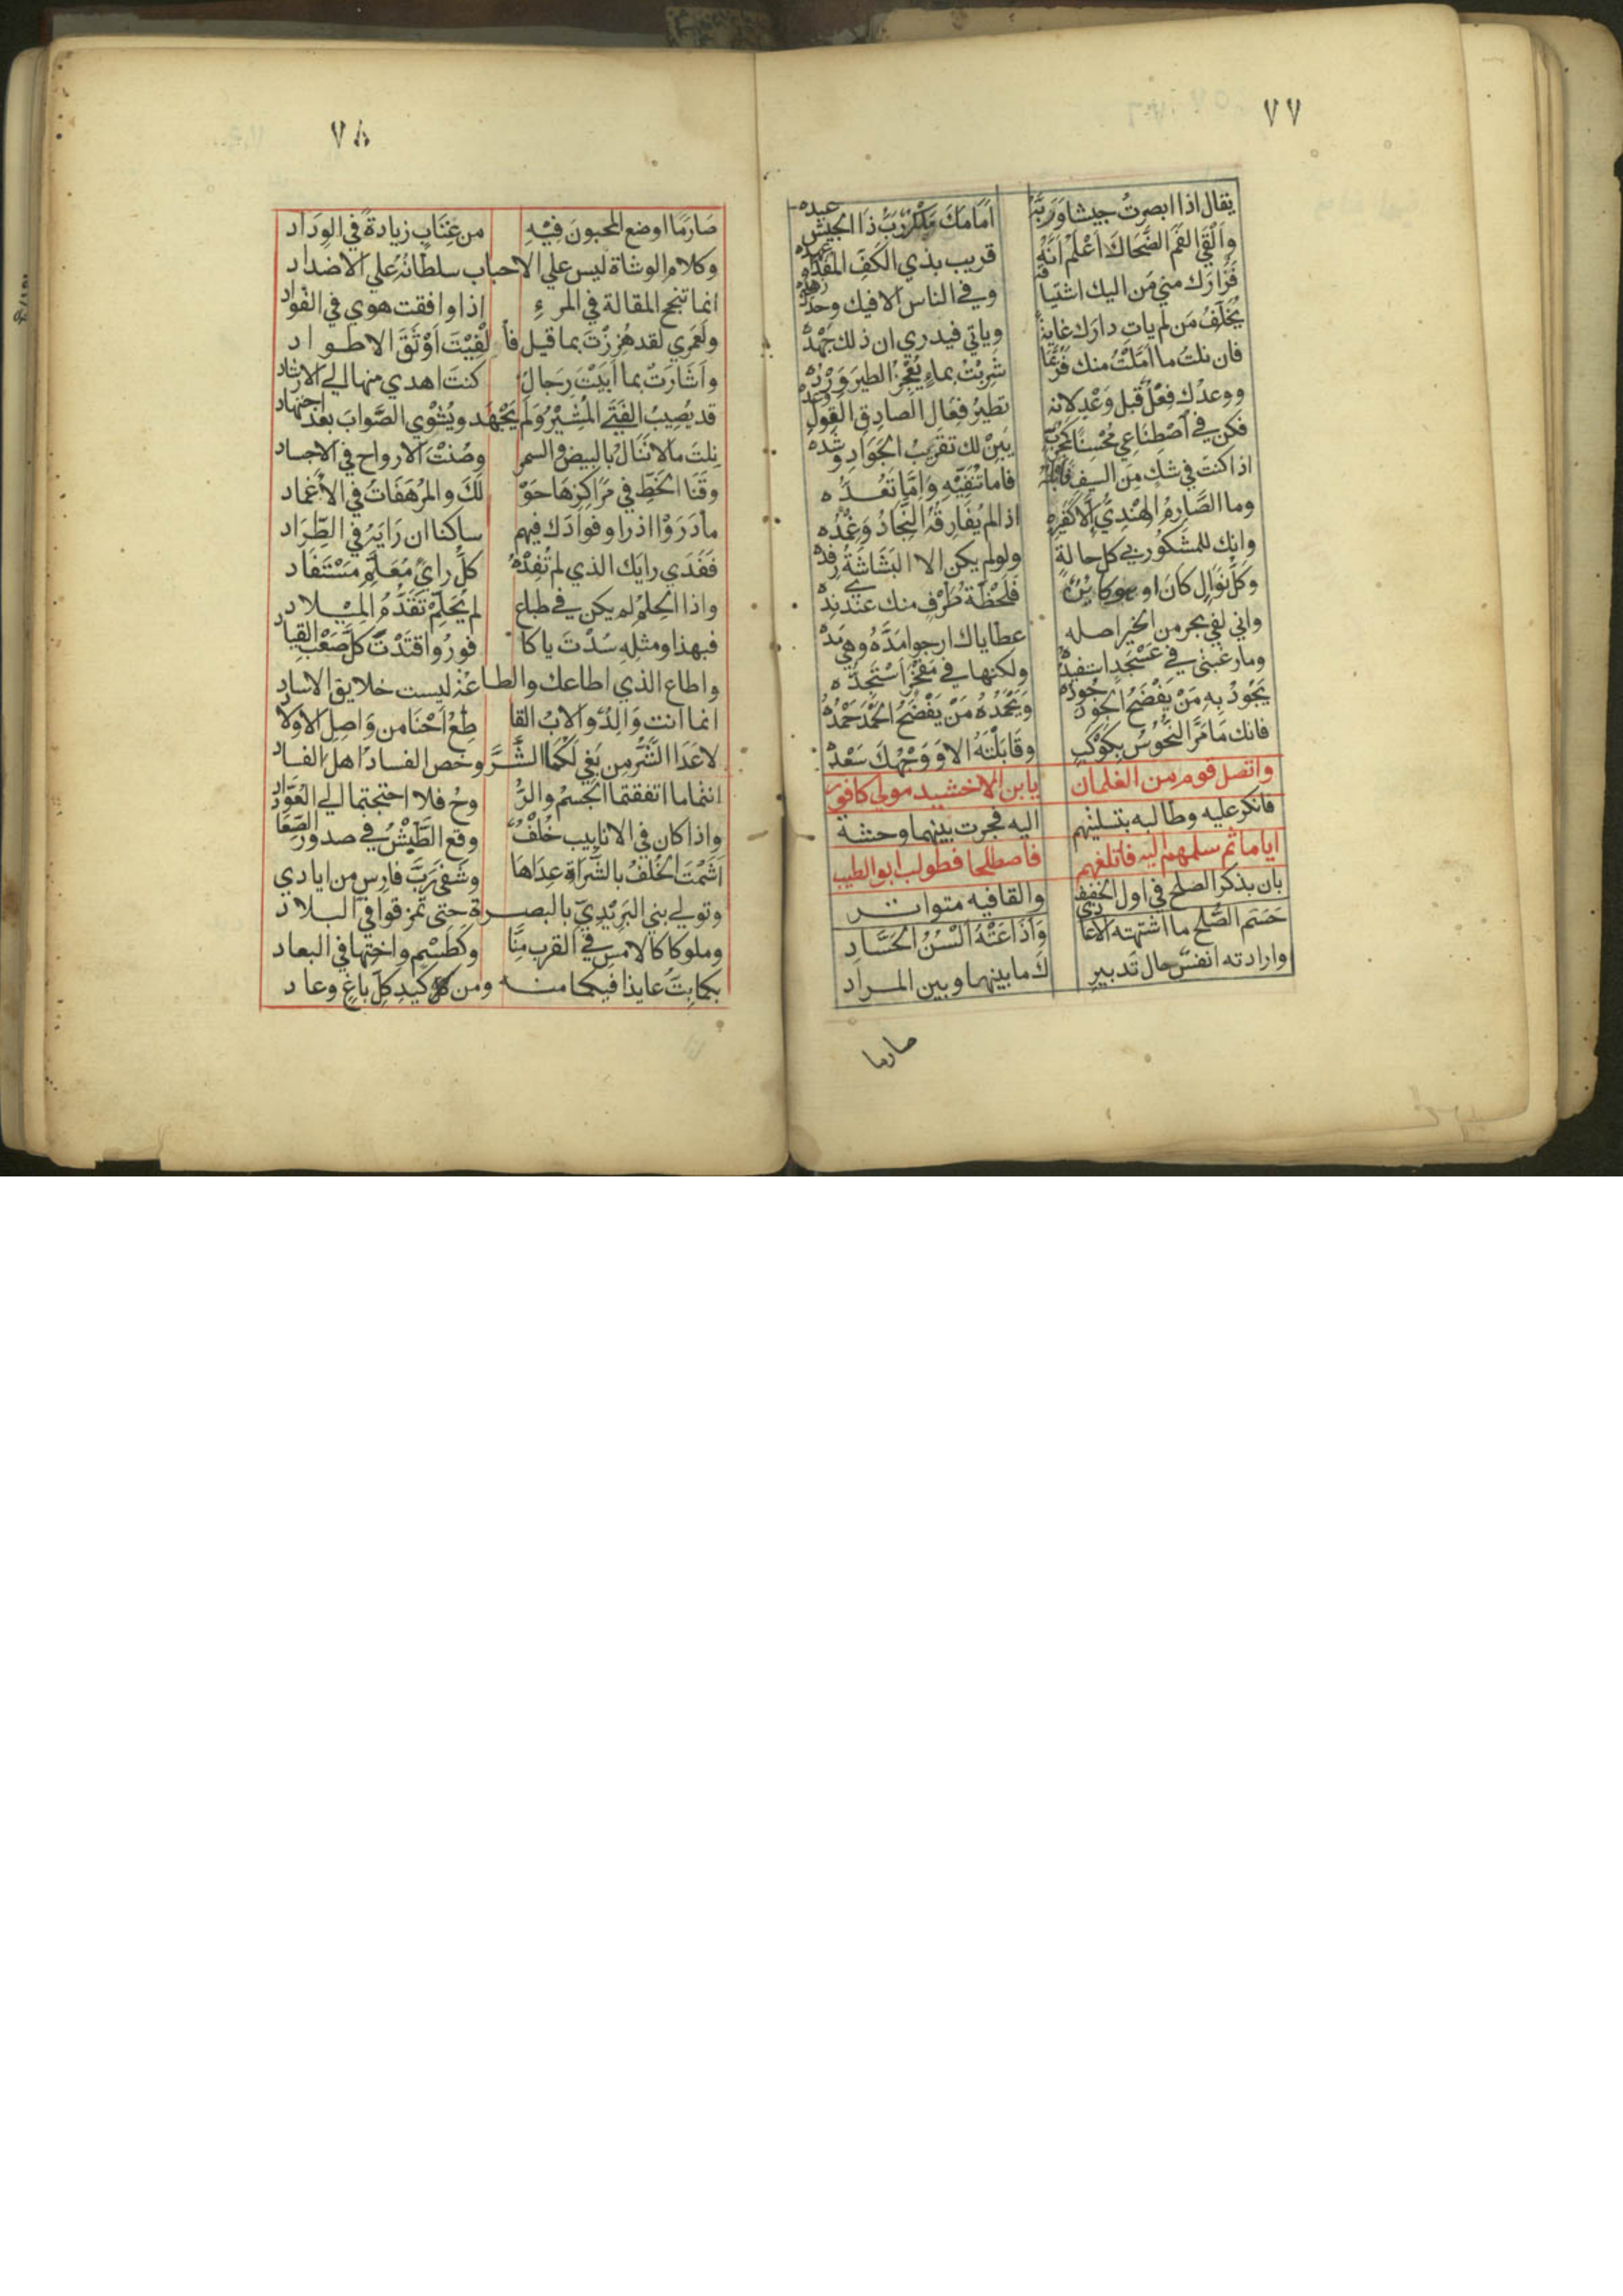 ٧٧
يقال اذا ابصرتُ جيشا وَرَبَّهُ امَامَكَ رَبٌّ رَبُّ ذَا الجيش عبده
وَاَلْقَى الفَمَ الضَّحَاكَ اَعْلَمْ اَنَّهُ قريب بذي الكَفِّ المُفَدَّاةِ عهده
فَزَارَكَ مني مَن اليك اشتياقه وفي الناس الا فيك وحدك زهده
يُخَلِّفُ مَن لم ياتِ دارَك غايةً وياتي فيدري ان ذلك جَهْدُهُ
فان نلتُ ما اَمَّلْتُ منك فَرُبَّمَا شَرِبْتُ بماءٍ يُعْجِزُ الطيرَ وِرْدُهُ
ووعدُك فِعْلٌ قبل وَعْدٍ لانه نظيرُ فِعَالِ الصادِقِ القَوْلِ وَعْدُه
فكن في اصْطِنَاعِي مُحْسِنًا كمُجَرِّبٍ يَبِنْ لك تقريبُ الجَوَادِ وشَدُّه
اذا كنتَ في شك مِنَ السيف فَابْلُهُ فاما تُنَفِّيْهِ وَاِمَّا تَعُدُّه
وما الصَّارِمُ الهِنْدِيُّ اِلا كَغَيرِهِ اذا لم يُفَارِقْهُ النِّجَادُ وَغِمْدُه
وانك للمشكُور في كل حالة ولو لم يكن الا البَشَاشَةُ رِفْدُه
وكلُّ نَوَالٍ كانَ او هو كَايِنٌ فَلَحْظَةُ طَرْفٍ منك عندي نِدُّه
واني لفي بحر من الخير اصله عطاياك ارجوا مَدَّهُ وهي مَدُّه
وما رغبتي في عَسْجَدٍ استفيدُهُ ولكنها في مَفْخَرٍ اَسْتَجِدُّه
يَجُودُ بِهِ مَنْ يَفْضَحُ الجودَ جُودُه وَيَحْمَدُهُ مَنْ يَفْضَحُ الحَمْدَ حَمْدُهُ
فانك مَا مَرَّ النُّحُوسُ بِكَوْكَبٍ وقَابَلْتَهُ الا وَوَجْهُكَ سَعْدُهُ
واتصل قوم من الغلمان يا بن الاخشيد مولى كافور
فانكر عليه وطالبه بتسليمهم اليه فجرت بينهما وحشة
اياما ثم سلمهم اليه فاتلفهم فاصطلحا فطولب ابو الطيب
بان يذكر الصلح في اول الخفيف والقافيه متواتر
حَسَم الصُّلح ما اشتهته الاعادي وَاَذَاعَتْهُ اَلْسُنُ الحُسَّادِ
وارادته انفسٌ حال تَدبيرُ كَ ما بينهما وبين المراد
صارما
٧٨
صَارَمَا اوضع المحبونَ فِيْهِ من عِتَابٍ زيادةً في الوِدَاد
وكلام الوشاة ليس علي الاحباب سلطانُهُ علي الاضداد
انما تنجح المقالة في المرءِ اذا وافقت هوي في الفواد
ولَعَمري لقد هُزِزْتَ بما قيل فأُ لْفِيْتَ اَوْثَقَ الاطواد
واَشَارَتْ بما اَبَيْتَ رِجَالٌ كنتَ اهدي منها الي الارشاد
قد يُصِيبُ الفَتَى المُشِيْرُ وَلَم يَجْهَد ويُشْوِي الصَّوابَ بعد اجتهاد
نِلتَ مالا تَنَالُ بالبيض والسمر وصُنْتَ الارواح في الاجساد
وقَنَا الخَطِّ في مَرَاكِزِهَا حَوْ لَكَ والمُرْهَفَاتُ في الأَغْمَاد
ما دَرَوْا اذ راوا فوادَك فيهم ساكنا ان رَايَهُ في الطِّرَاد
ففَدَي رايَك الذي لم تُفَدْهُ كلُّ رايٍ مُعَلَّمٍ مُسْتَفَاد
واذا الحِلمُ لم يكن في طباع لم يُحَلِّمْ تَقَدُّمُ المِيْلاد
فبهذا ومثلِهِ سُدْتَ يا كا فورُ واقتَدْتَ كلَّ صَعْبِ القياد
واطاع الذي اطاعك والطاعَةُ ليست خلايق الاساد
انما انت وَالِدٌ والابُ القا طِعُ اَحْنَا من وَاصِلِ الاَوْلا
لا عَدَا الشَّرُّ مِن بَغي لَكُمَا الشَّرَّ وخص الفسادُ اهل الفساد
انتما ما اتفقتما الجسمُ والرُّ وحُ فلا احتجتما الي العُوّاد
واذا كان في الانابيب خُلْفٌ وقع الطَّيْشُ في صدور الصِّعَاد
اَشْمَتَ الخُلفُ بالشَّرَاةِ عِدَاهَا وشَفَي رَبَّ فارِسٍ من ايادي
وتولي بني البَرِيْدِيِّ بالبصرة حتي تمزقوا في البلاد
وملوكا كالامس في القرب مِنَّا وكَطَسْم واختها في البعاد
بكما بِتُّ عايذا فيكما منه ومن كيدِ كلِّ باغٍ وعاد